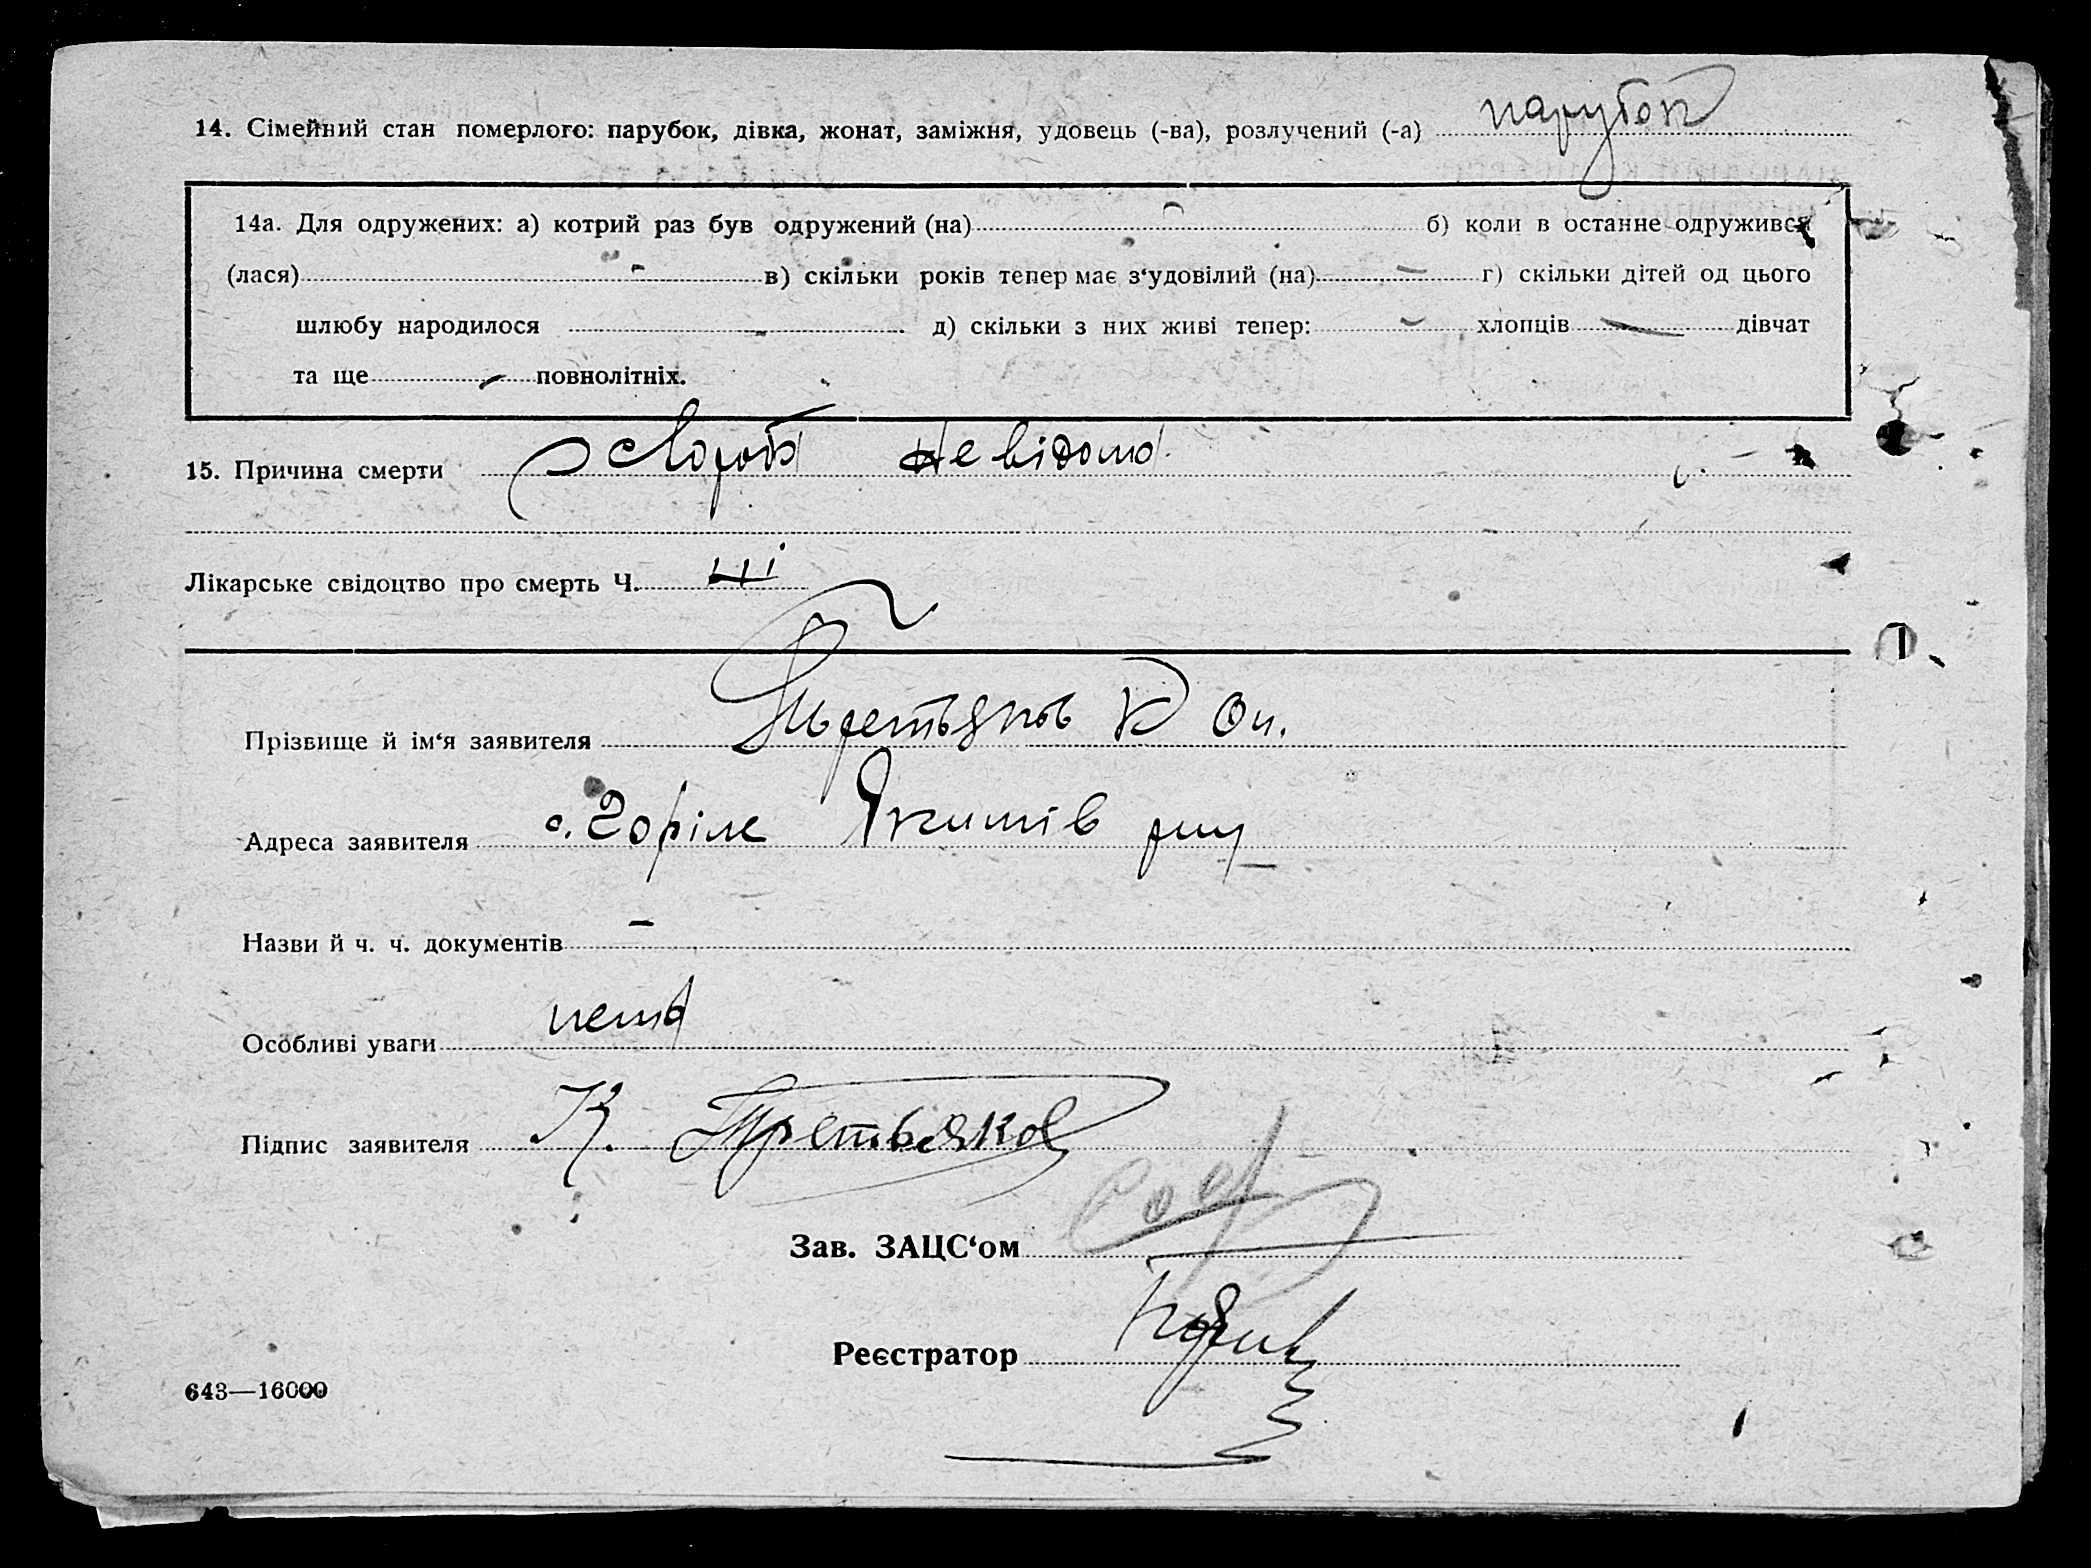 14. Сімейний стан померлого: парубок, дівка, жонат, заміжня, удовець (-ва), розлучений (-а) парубок
14а. Для одружених: а) котрий раз був одружений (на) - б) коли в останне одружився
(лася) - в) скільки років тепер має з‘удовілий (на) - г) скільки дітей од цього
шлюбу народилося - д) скільки з них живі тепер: - хлопців - дівчат
та ще - повнолітніх.
15. Причина смерти хвороба невідома
Лікарське свідоцтво про смерть Ч.
Прізвище й ім‘я заявителя Третьяков К
Адреса заявителя с. Горіле Якимів
Назви й ч. ч. документів -
Особливі уваги нема
Підпис заявителя К. Третьяков
Зав. ЗАЦС‘ом
Реєстратор
643—16000